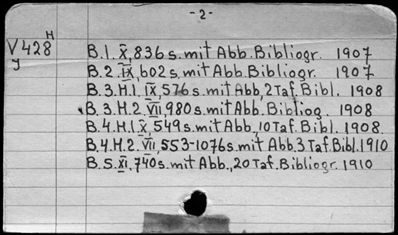 -2-
H
V428
J
B.1. X, 836s. mit Abb. Bibliogr. 1907
B.2. IX, 602s. mit Abb. Bibliogr. 1907
B.3.H.1. IX, 576s. mit Abb, 2 Taf. Bibl. 1908
B.3.H.2. VII, 980s. mit Abb. Bibliog. 1908
B.4.H.1 X, 549s. mit Abb, 10 Taf. Bibl. 1908.
B.4.H.2. VII, 553-1076s. mit Abb. 3 Taf Bibl. 1910
B.5. XI, 740s. mit Abb., 20 Taf. Bibliogr. 1910